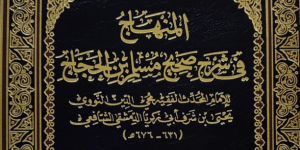 المنهاج
في شرح صحيح مسلم بن الحجاج
للإمام المحدث الفقيه محيي الدين النووي
يحيى بن شرف أبي زكريا الدمشقي الشافعي
(٦٣١-٦٧٦ھ)